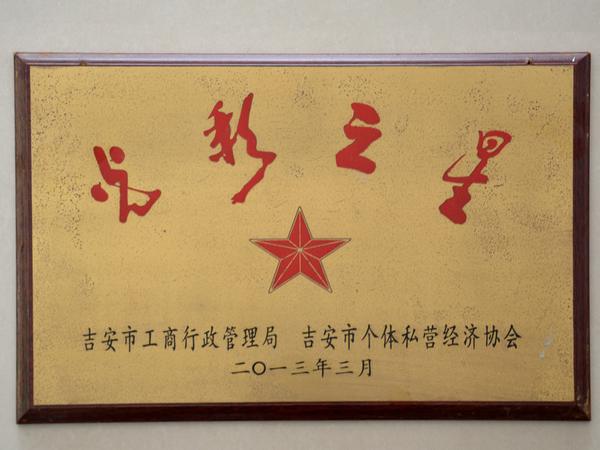 光彩之星
吉安市工商行政管理局 吉安市个体私营经济协会
二〇一三年三月